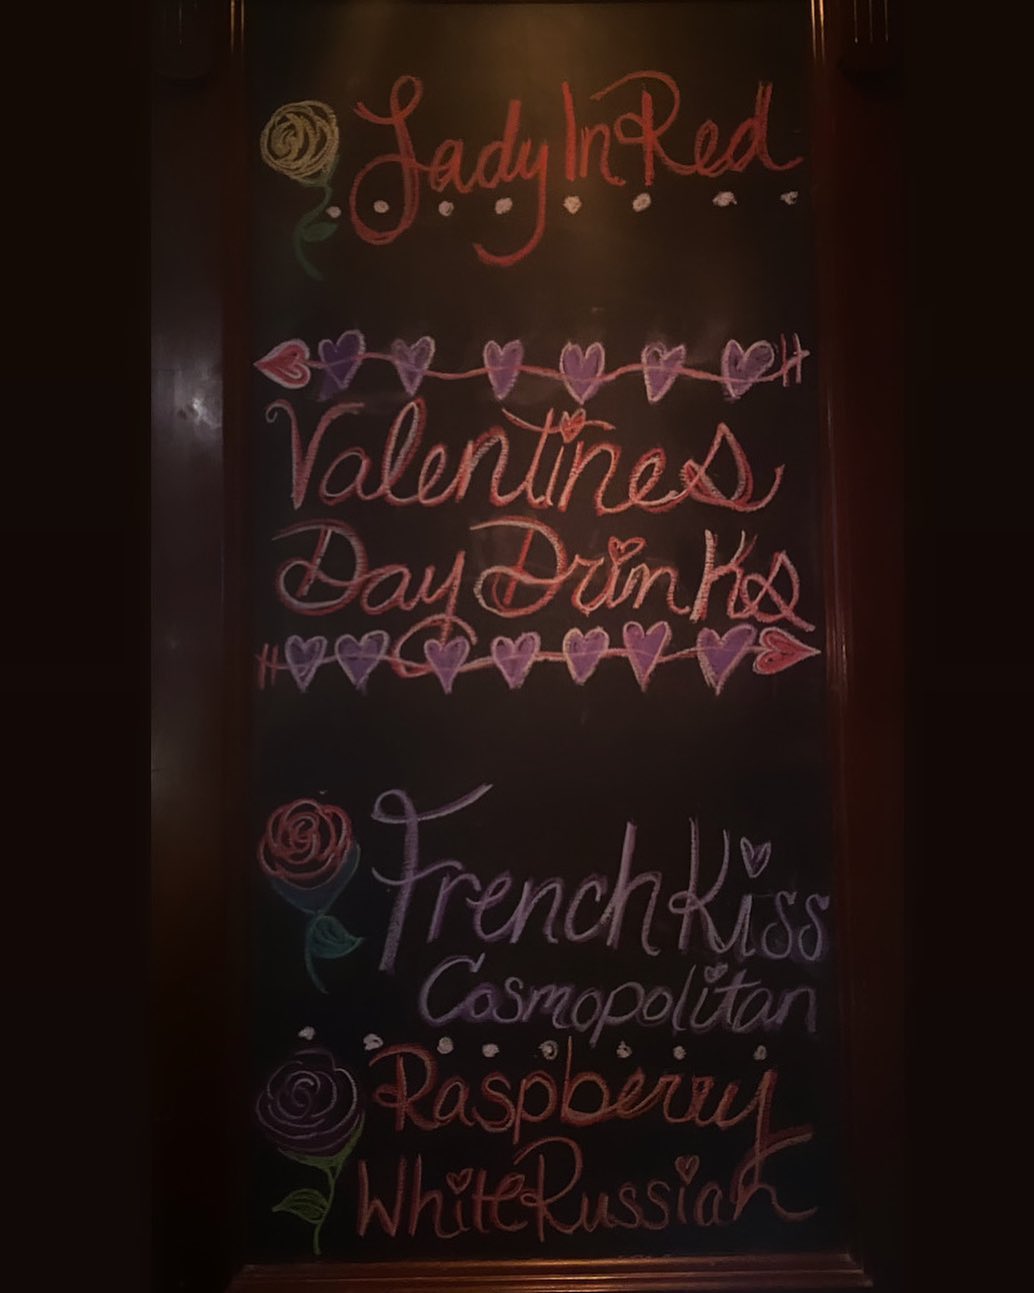 Lady In Red
Valentines
Day Drinks
French Kiss
Cosmopolitan
Raspberry
White Russian